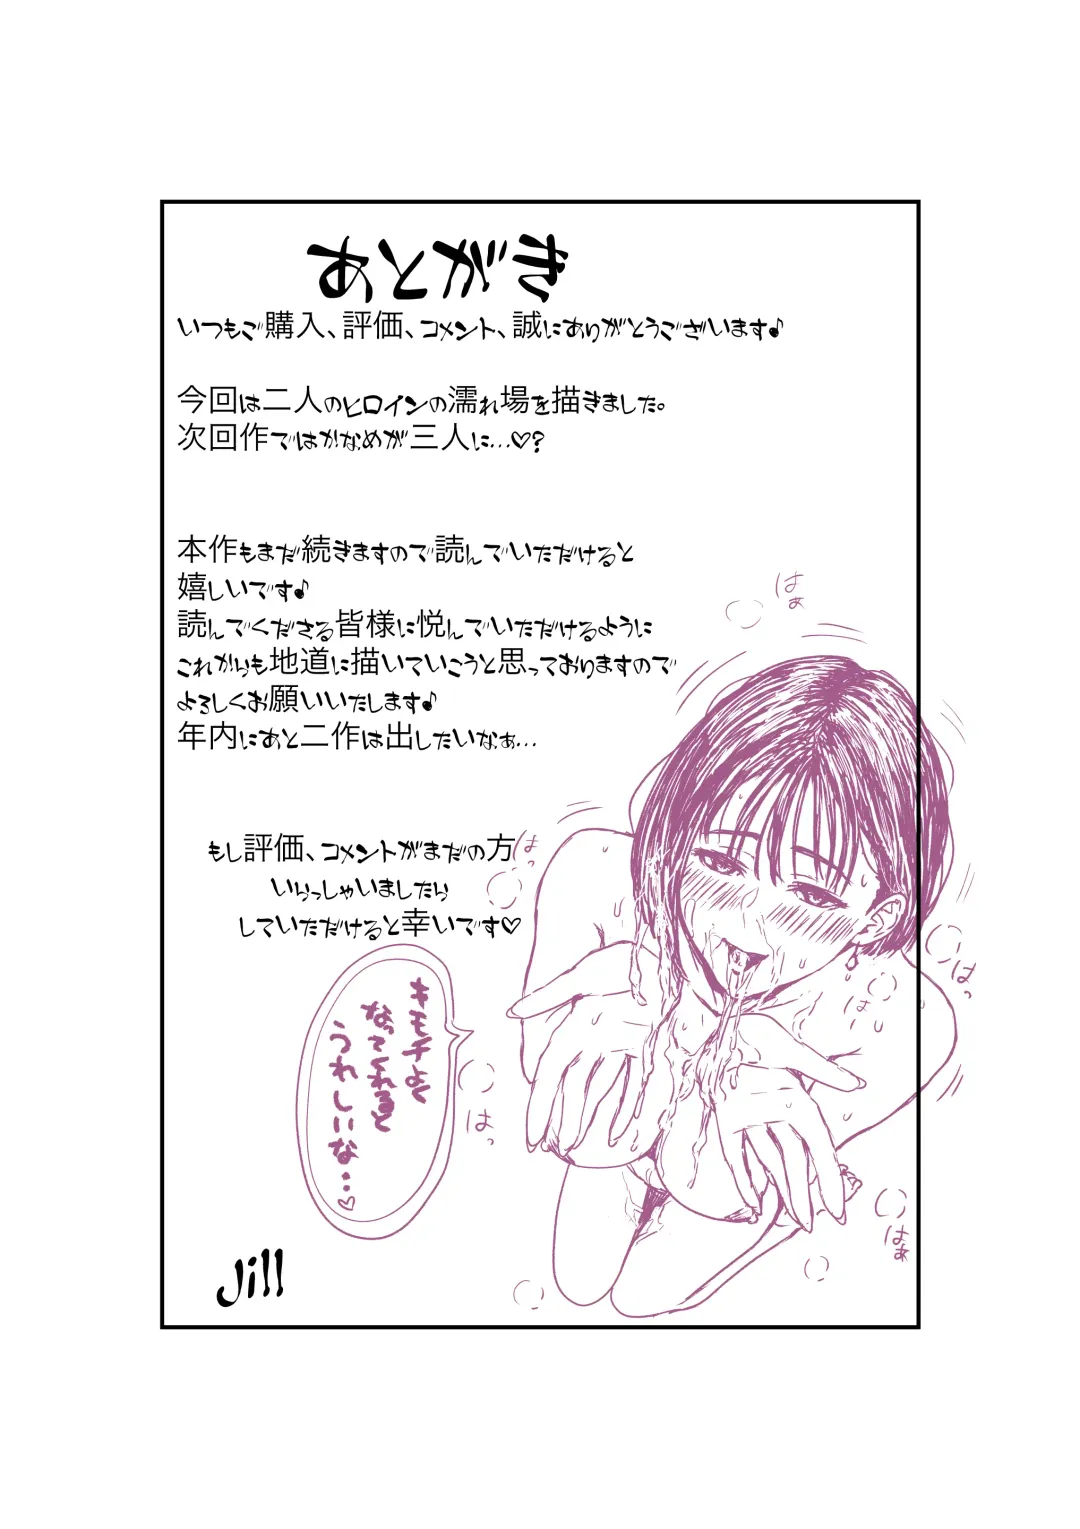 あとがき
いつもご購入、評価、コメント、誠にありがとうございます♪
今回は二人のヒロインの濡れ場を描きました。
次回作ではかなめが三人に…♡?
本作もまだ続きますので読んでいただけると
嬉しいです♪
読んでくださる皆様に悦んでいただけるように
これからも地道に描いていこうと思っておりますので
よろしくお願いいたします♪
年内にあと二作は出したいなぁ…
もし評価、コメントがまだの方
いらっしゃいましたら
していただけると幸いです♡
はぁ
はっ
はっ
は
キモチよく
なってくれると
うれしいな…♡
はっ
はぁ
Jill